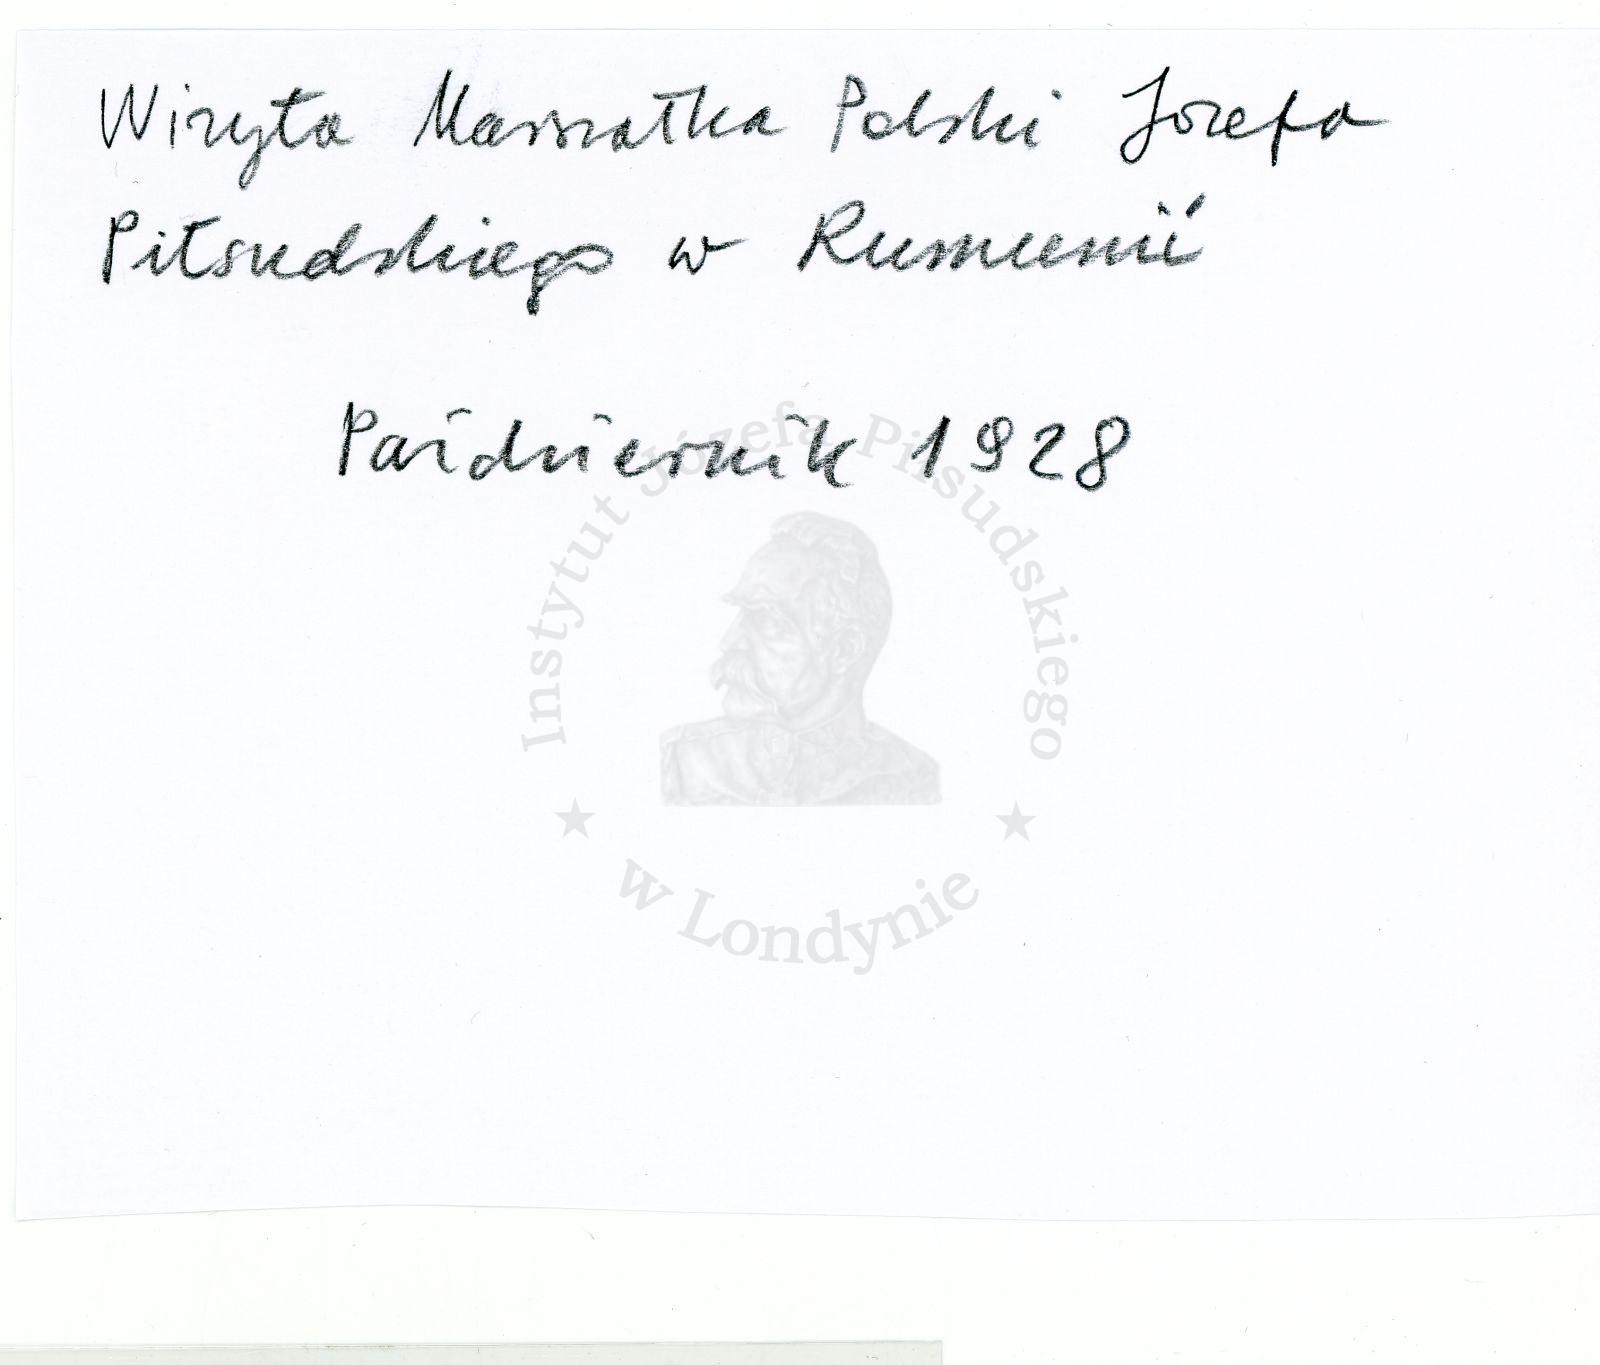 Wizyta Marszałka Polski Józefa
Piłsudskiego w Rumunii
Październik 1928
Instytut Józefa Piłsudskiego
w Londynie